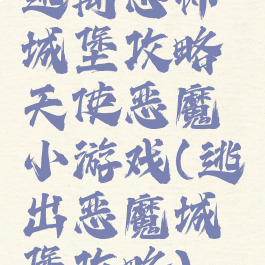 逃离恶魔
城堡攻略
天使恶魔
小游戏(逃
出恶魔城
堡攻略)